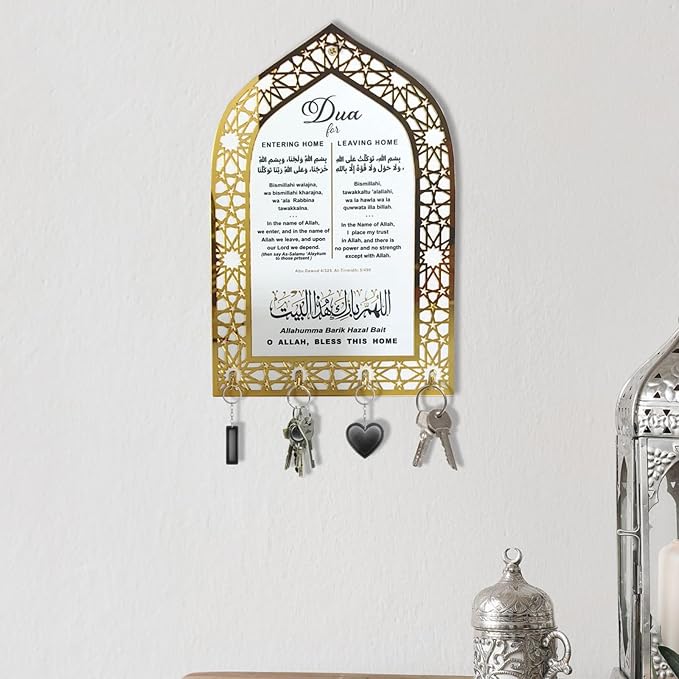 Dua
for
ENTERING HOME
بِسْمِ اللهِ وَلَجْنَا، وَبِسْمِ اللهِ
خَرَجْنَا، وَعَلَى اللهِ رَبِّنَا تَوَكَّلْنَا
Bismillahi walajna,
wa bismillahi kharajna,
wa 'ala Rabbina
tawakkalna.
In the name of Allah,
we enter, and in the name of
Allah we leave, and upon
our Lord we depend.
(then say As-Salamu 'Alaykum
to those present)
LEAVING HOME
بِسْمِ اللهِ، تَوَكَّلْتُ عَلَى اللهِ
، وَلَا حَوْلَ وَلَا قُوَّةَ إِلَّا بِاللهِ
Bismillahi,
tawakkaltu 'alallahi,
wa la hawla wa la
quwwata illa billah.
In the name of Allah,
I place my trust
in Allah, and there is
no power and no strength
except with Allah.
اللهم بارك هذا البيت
Allahumma Barik Hazal Bait
O ALLAH, BLESS THIS HOME